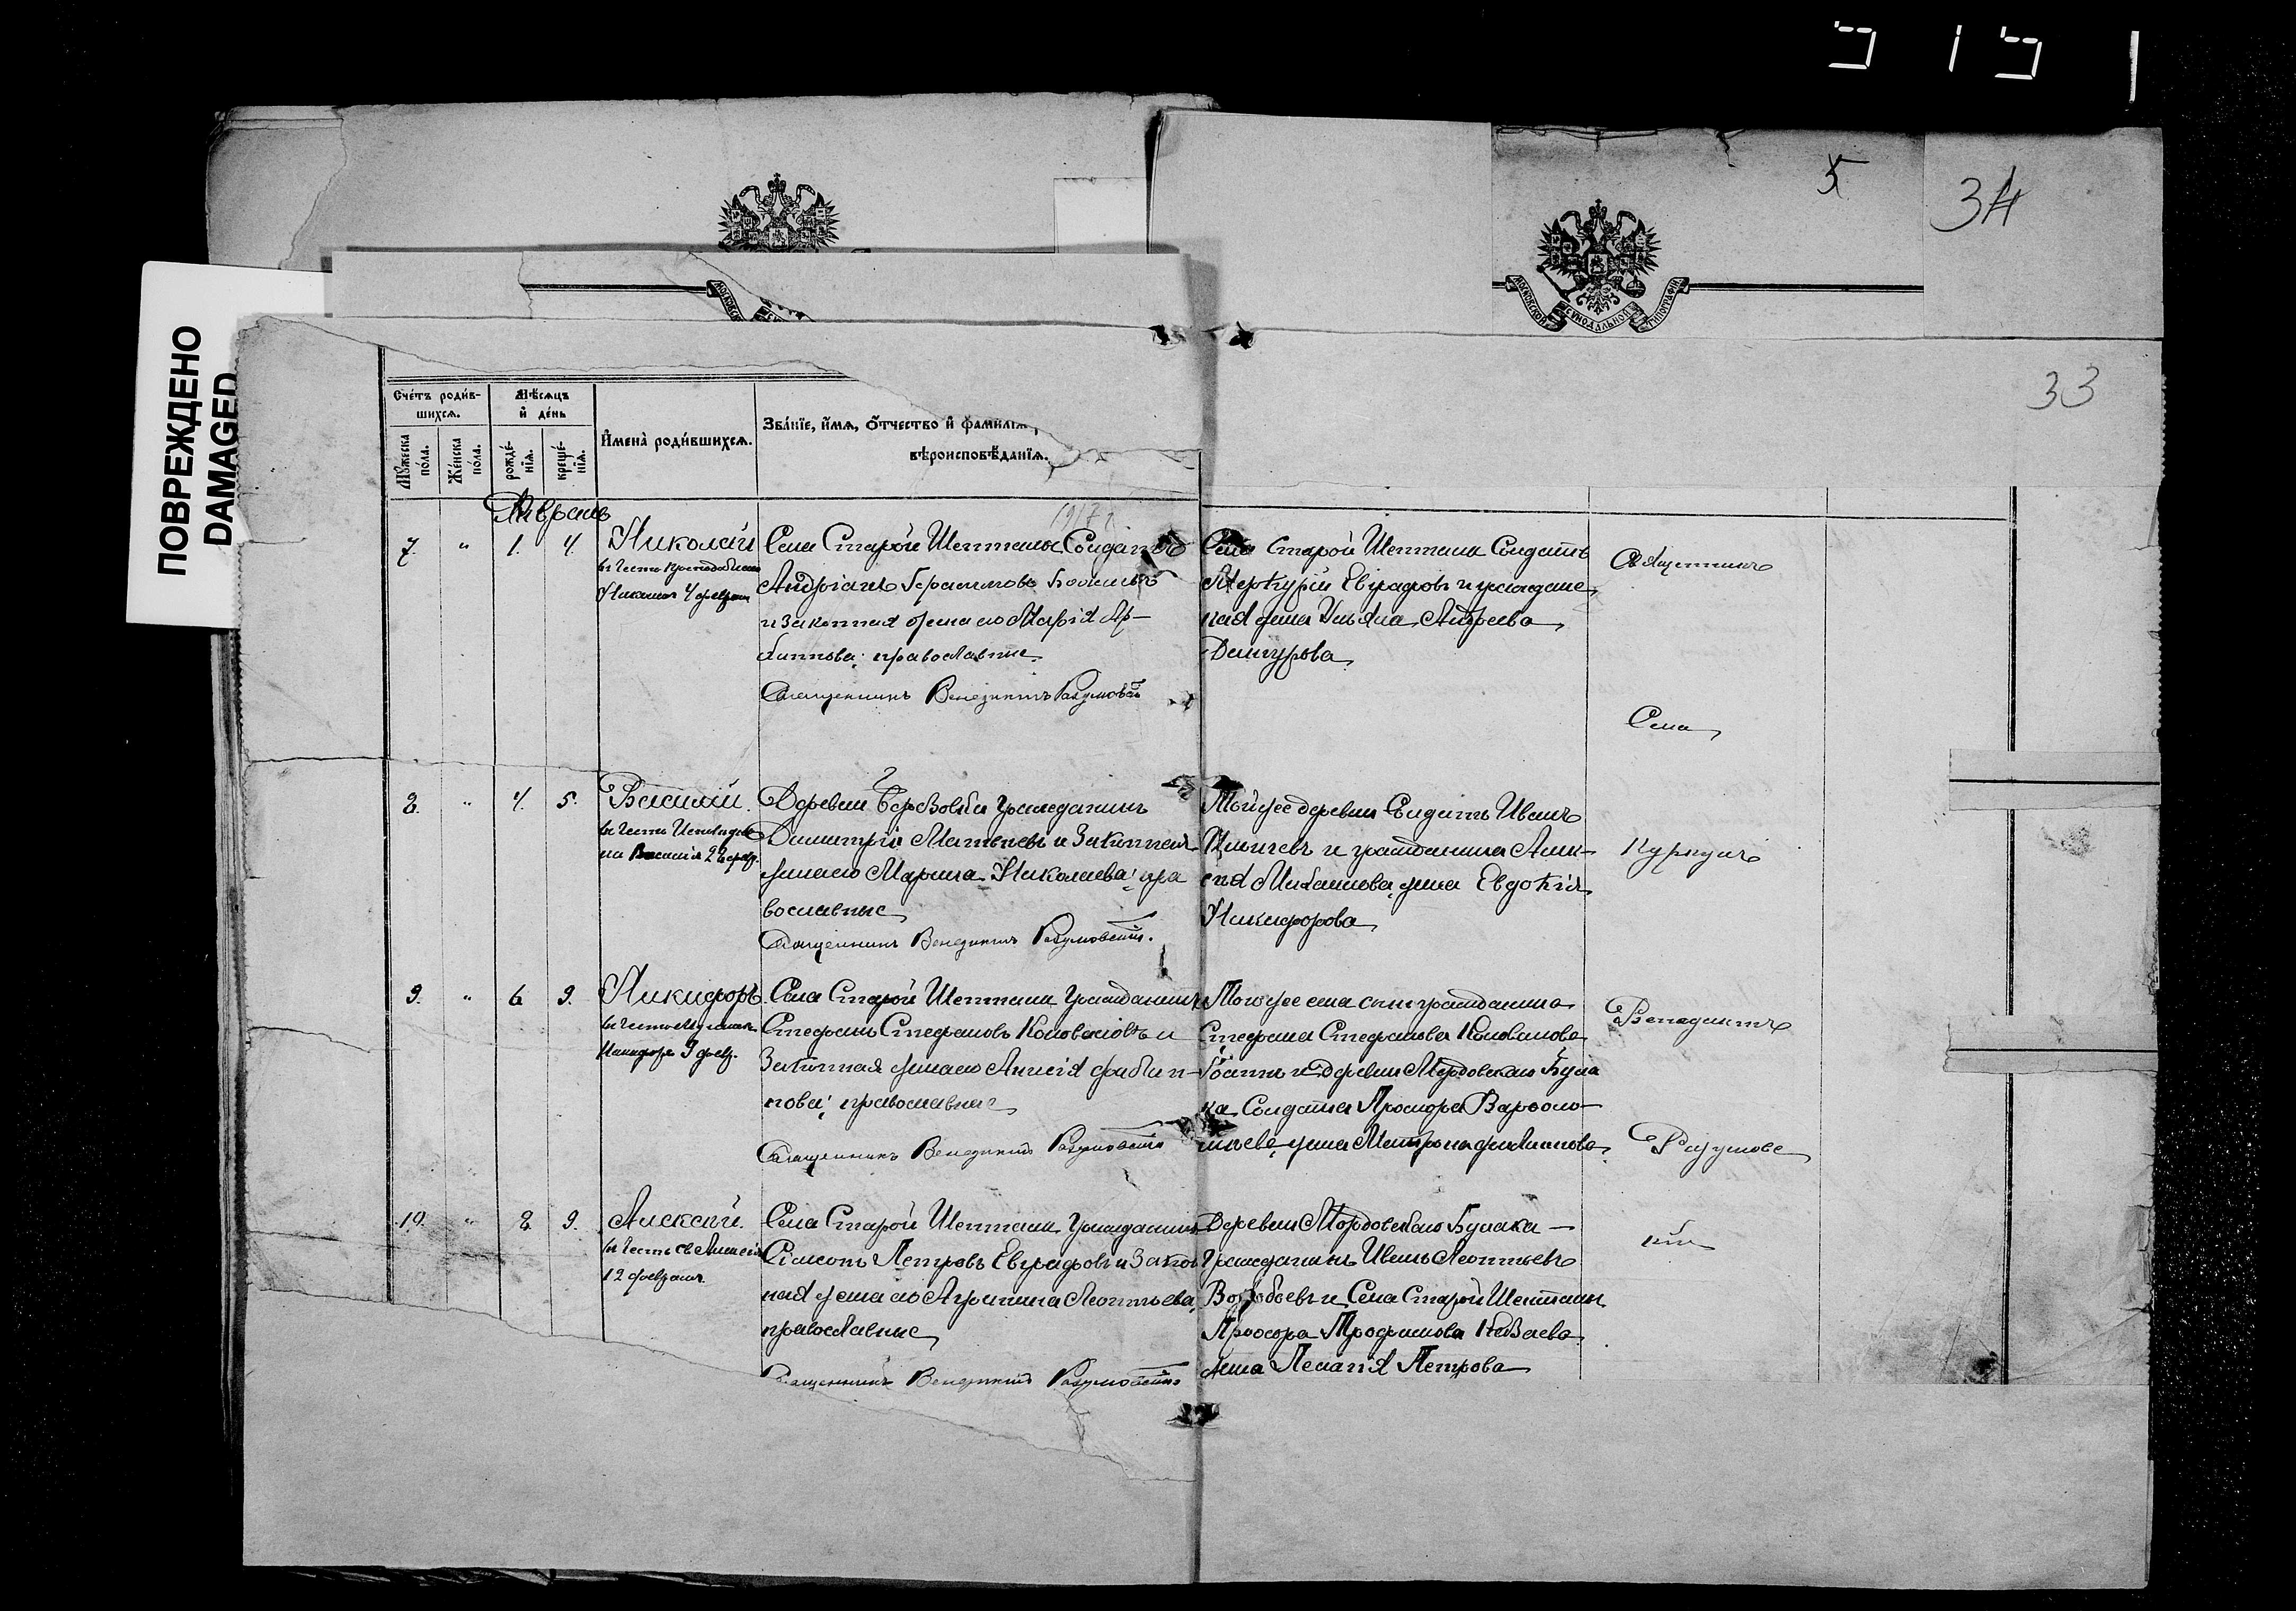 5
34
МОСКОВСКОЙ СУНОДАЛЬНОЙ ТИПОГРАФІИ
33
ПОВРЕЖДЕНО
DAMAGED
Сче́тъ роди́в-
шихся.
Мѣ́сяцъ
и҆ де́нь
Мꙋ́жеска
по́ла.
Же́нска
по́ла.
рожде́-
нїѧ.
креще́-
нїѧ.
И҆мена̀ роди́вшихсѧ.
Зва́нїе, и҆́мѧ, ѻ҆́тчество и҆ фамилїѧ
вѣроисповѣ́данїѧ.
Февраль
7. " 1. 4. Николай
въ честь преподобнаго
Николая 4 февраля
Села Старой Шентала Солдатъ
Андріанъ Герасимовъ
и законная жена его Марія Ар-
хиппова, православные
Священникъ Венедиктъ Разумовскій
Села Старой Шентала Солдатъ
Меркурій Евграфовъ и граждан
ская жена Ульяна Андреева
Священникъ
Села
8. " 4. 5. Василій
въ честь Исповѣдни
на Василія 22 февр.
Деревни Березовки гражданинъ
Димитрій Матвѣевъ и законная
жена его Марина Николаева, пра
вославные
Священникъ Венедиктъ Разумовскій.
Той же деревни Солдатъ Иванъ
Ильичевъ и гражданина Алек-
сѣя Михайлова жена Евдокія
Никифорова
9. " 6 9. Никифоръ
въ честь Мученика
Никифора 9 февр.
Села Старой Шентала Гражданинъ
Стефанъ Стефановъ Коноваловъ и
Законная жена его Анисія
нова, православные
Священникъ Венедиктъ Разумовскій
Того же села сынъ гражданина
Стефана Стефанова Коновалова
Іоаннъ и деревни Мордовскаго Була
ка Солдата Прохора Варѳоло-
мѣева жена Матрона
Венедиктъ
Разумовс
кій
10. " 8. 9. Алексій.
въ честь св. Алексія
12 февраля
Села Старой Шентала Гражданинъ
Сімеонъ Петровъ Евграфовъ и закон
ная жена его Агрипина Леонтьева,
православные
Священникъ Венедиктъ Разумовскій
Деревни Мордовскаго Булака
Гражданинъ Иванъ Леонтьевъ
Воробьевъ и Села Старой Шентала
Прохора Трофимова
жена Пелагія Петрова